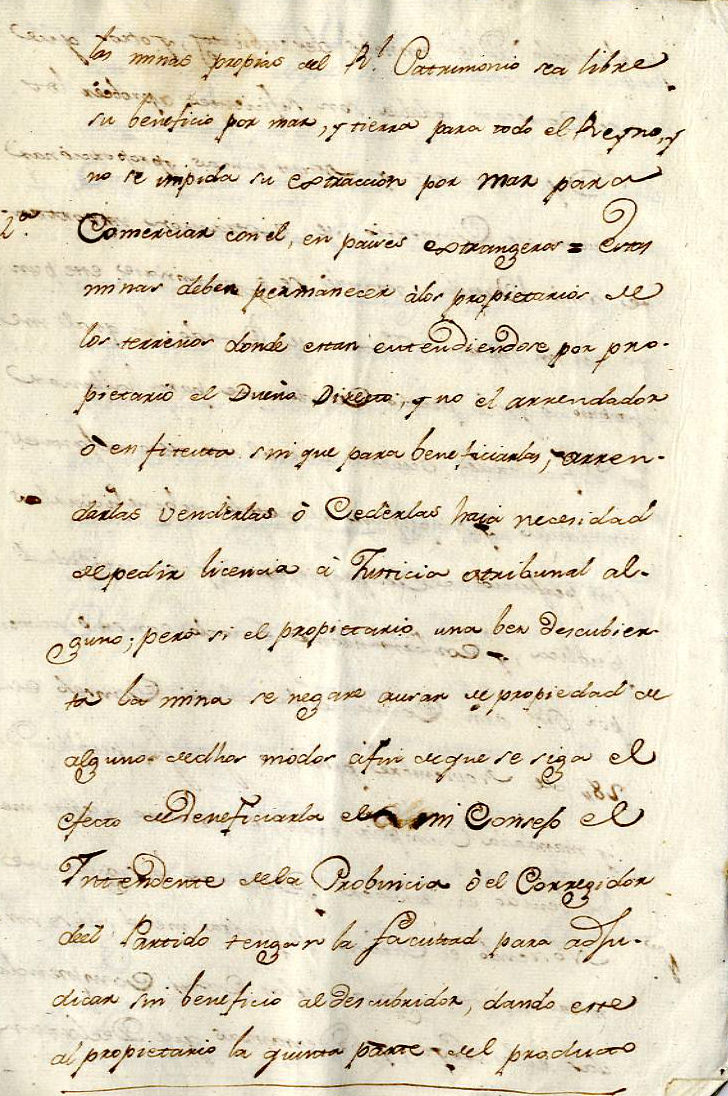 las minas propias del Rl. Patrimonio sea libre
su beneficio por mar, y tierra para todo el Reyno, y
no se impida su extraccion por mar para
2ª. Comerciar con el, en paises extrangeros = Estas
minas deben permanecer àlos propietarios de
los terrenos donde estan entendiendose por pro-
pietario el Dueño Directo, y no el arrendador
ò enfiteuta sin que para beneficiarlas, arren-
darlas venderlas ò Cederlas haia necesidad
de pedir licencia à Justicia otribunal al-
guno; pero si el propietario una bez descubier-
ta la mina se negare ausar de propiedad de
alguno dedhos modos afin de que se siga el
efecto de beneficiarla el mi Consejo el
Intendente dela Probincia ò el Corregidor
deel Partido tengan la facultad para adju-
dicar sin beneficio al descubridor, dando este
al propietario la quinta parte del producto